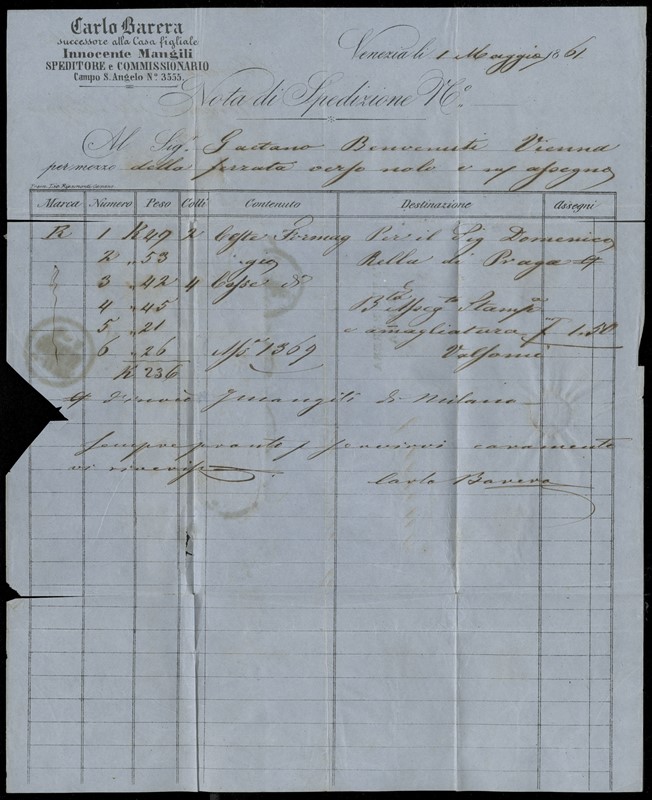 Carlo Barera
successore alla Casa figliale
Innocente Mangili
SPEDITORE e COMMISSIONARIO
Campo S. Angelo Nº 3555.
Venezia li 1 Maggio 1861
Nota di Spedizione Nº
Al Sigr. Gaetano Benvenuti Vienna
per mezzo della ferrata verso nolo e assegno
Marca Numero Peso Colli Contenuto Destinazione Assegni
R 1 K 49 2 Ceste Formag Per il Sig Domenico
2 " 53 gio Rella di Praga
3 " 42 4 Casse di
4 " 45 Stamp
5 " 21 e amagliatura f 1.50
6 " 26 1369 Valsomi
K 236
d'invio Jmangili di Milano
Sempre pronto servirvi caramente
vi riverisco Carlo Barera